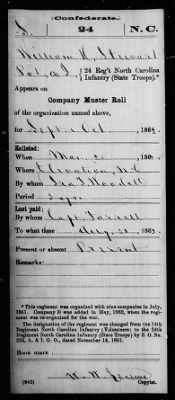 Confederate.
S. 24 N.C.
William K. Stewart
Pvt., Co. I, 24 Reg't North Carolina
Infantry (State Troops).*
Appears on
Company Muster Roll
of the organization named above,
for Sept & Oct, 186
Enlisted:
When 186
Where N.C.
By whom
Period 3 yrs
Last paid:
By whom Capt.
To what time Aug 31, 186
Present or absent Present
Remarks:
*This regiment was organized with nine companies in July,
1861. Company D was added in May, 1862, when the regi-
ment was re-organized for the war.
The designation of the regiment was changed from the 14th
Regiment North Carolina Infantry (Volunteers) to the 24th
Regiment North Carolina Infantry (State Troops) by S. O. No.
222, A. & I. G. O., dated November 14, 1861.
Book mark:
(642) Copyist.